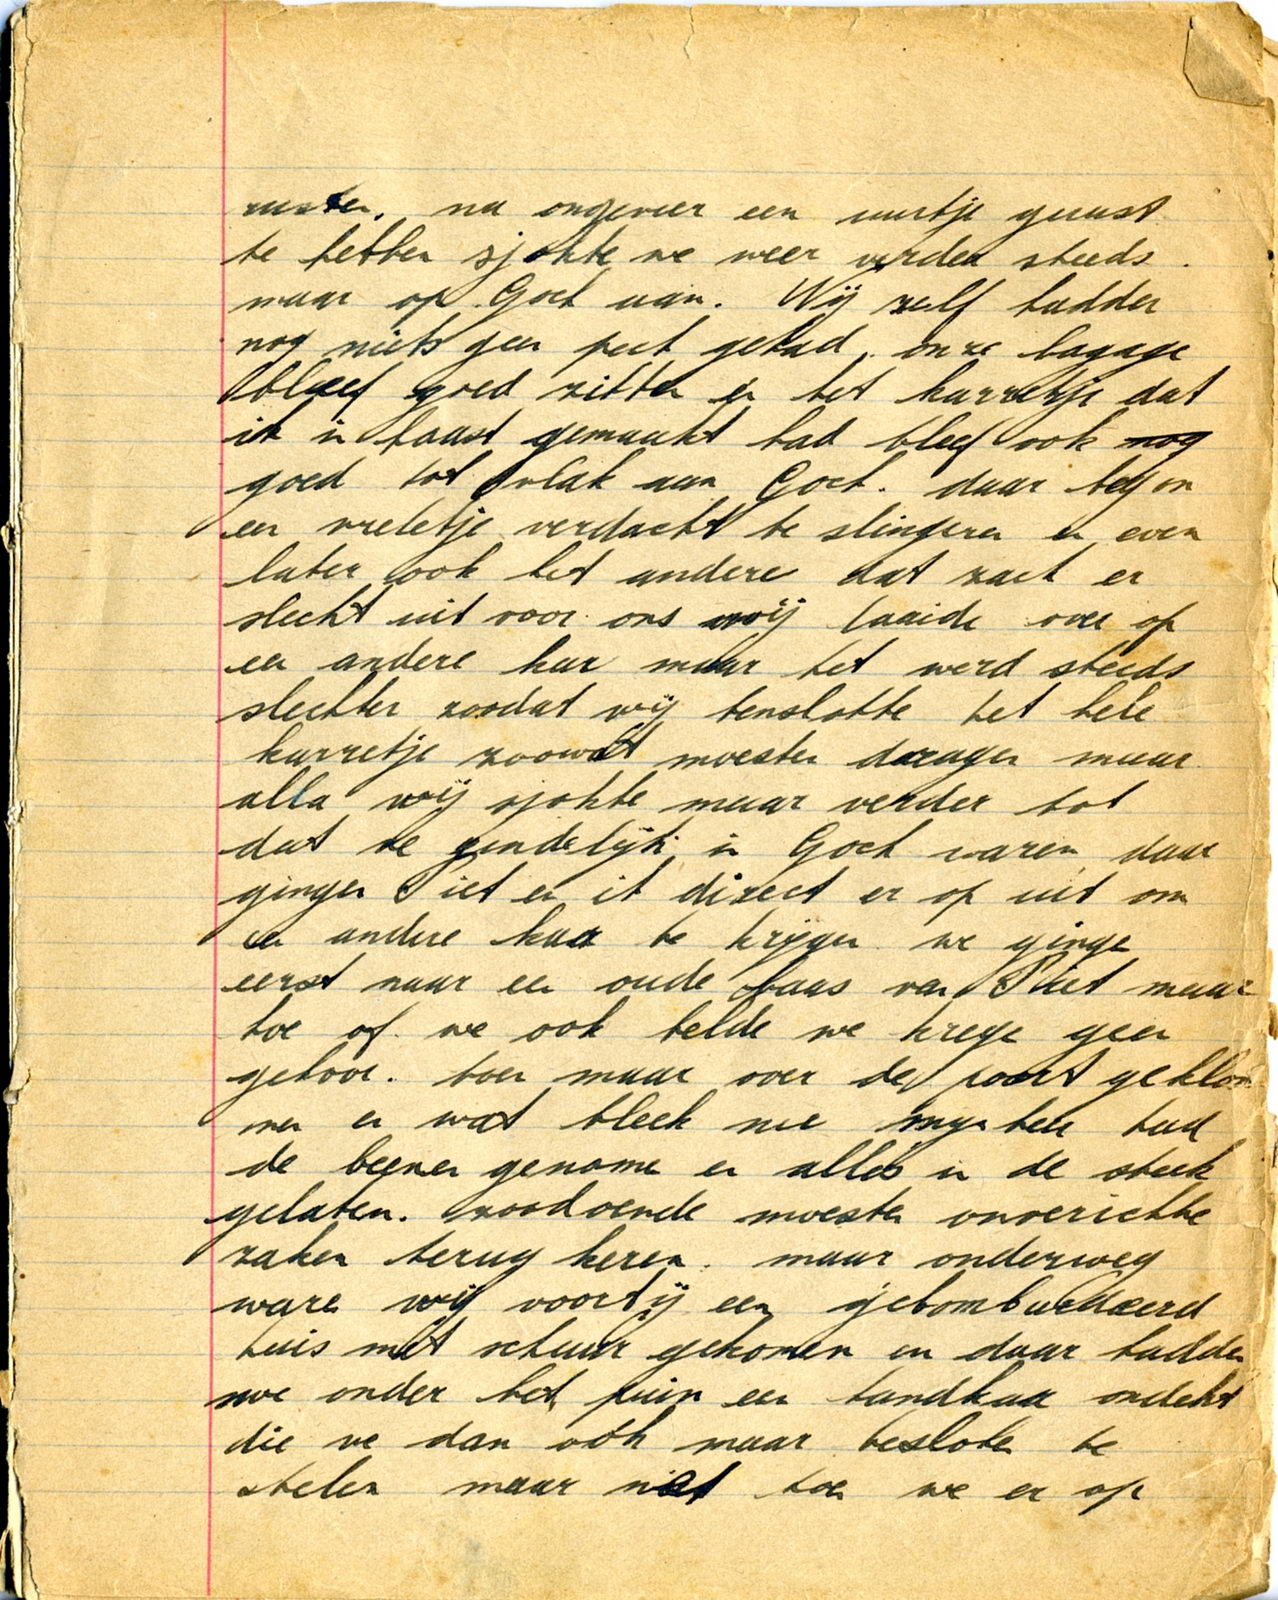 rusten. na ongeveer een uurtje gerust
te hebben sjokte we weer verder steeds
maar op Goch aan. Wij zelf hadden
nog niets geen pech gehad. onze bagage
bleef goed zitten en het karretje dat
ik in haast gemaakt had bleef ook nog
goed tot vlak aan Goch. daar begon
een wieletje verdacht te slingeren en even
later ook het andere dat zach er
slecht uit voor ons wij laaide over op
een andere kar maar het werd steeds
slechter zoodat wij tenslotte het hele
karretje zoowat moesten dragen maar
alla wij sjokte maar verder tot
dat we eindelijk in Goch waren, daar
gingen Piet en ik direct er op uit om
een andere kar te krijgen we ginge
eerst naar een oude baas van Piet maar
toe of we ook belde we krege geen
gehoor. toen maar over de poort geklom
men en wat bleek mijnheer had
de beenen genomen en alles in de steek
gelaten. zoodoende moesten onverichte
zaken terug keren. maar onderweg
ware wij voorbij een gebombardeerd
huis met schuur gekomen en daar hadden
we onder het puin een handkar ondekt
die we dan ook maar beslote te
stelen maar net toen we er op